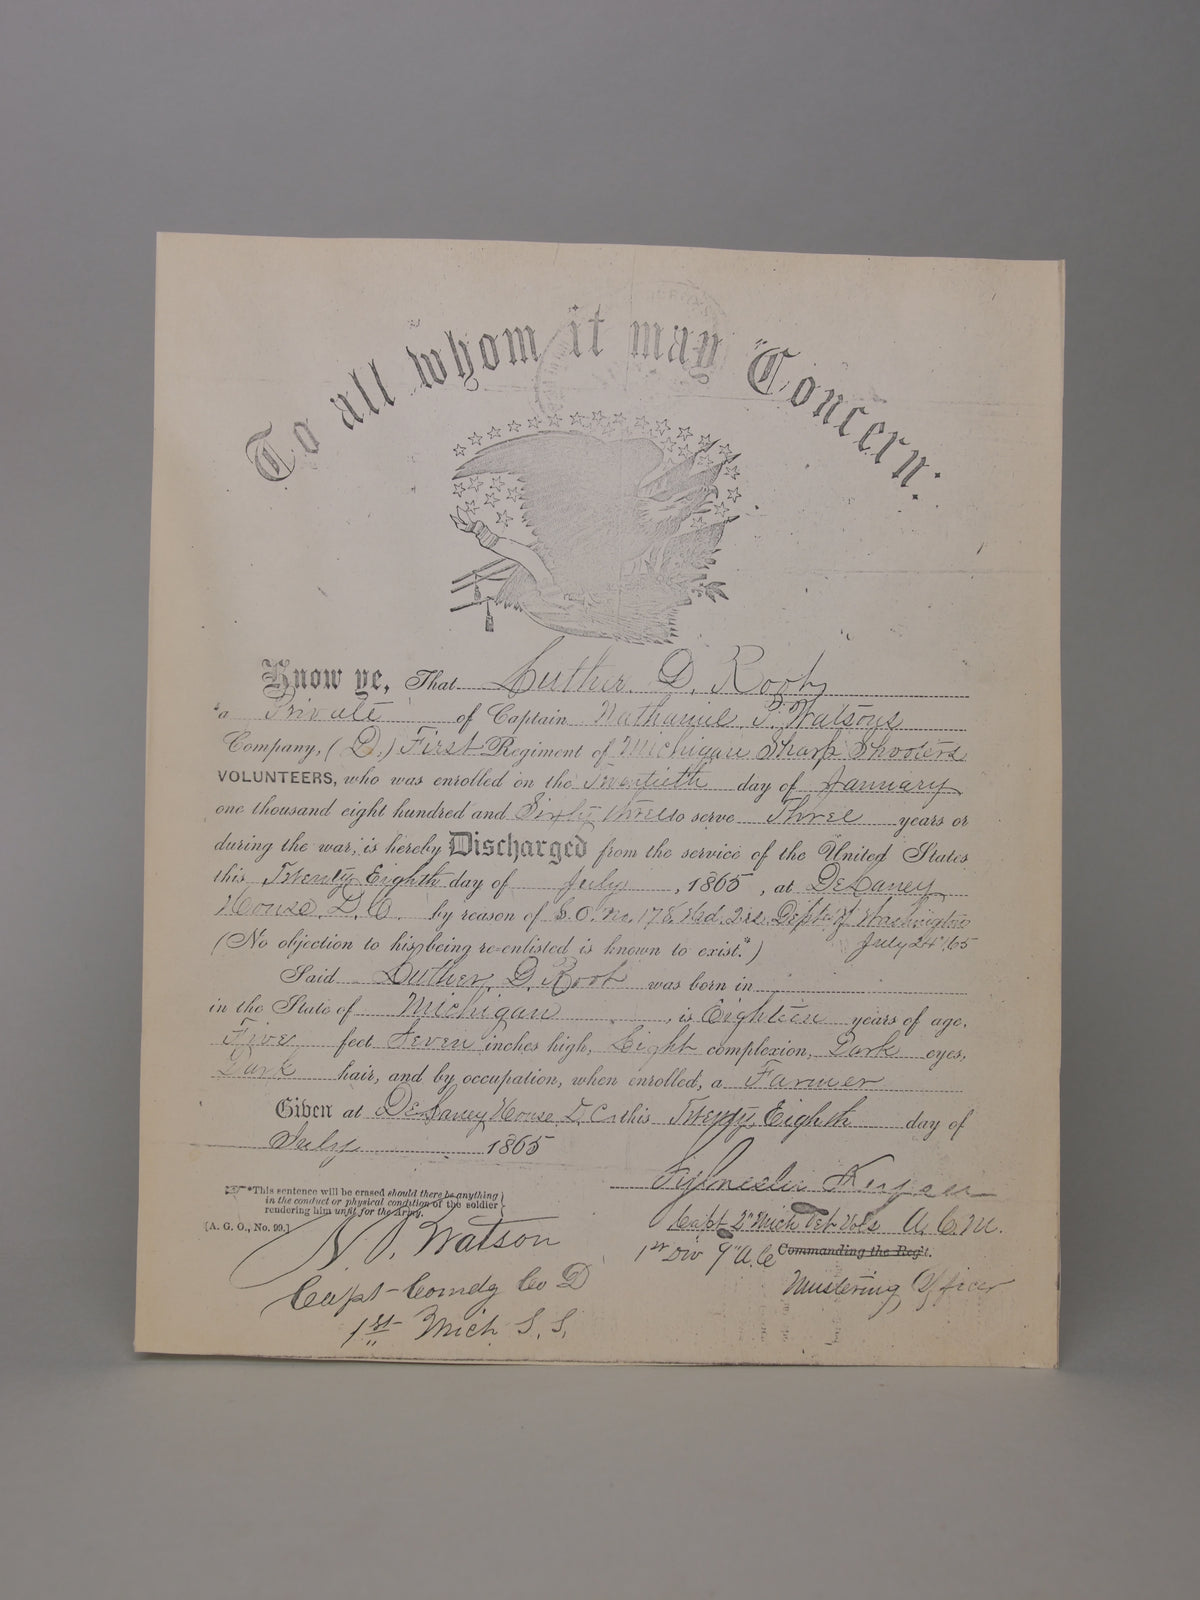 To all whom it may Concern:
Know ye, That Luther D. Root
a Private of Captain Nathaniel P. Watsons
Company, (D.) First Regiment of Michigan Sharp Shooters
VOLUNTEERS, who was enrolled on the Twentieth day of January
one thousand eight hundred and Sixty three to serve Three years or
during the war, is hereby Discharged from the service of the United States
this Twenty Eighth day of July, 1865, at DeLaney
House D.C. by reason of S.O. No. 178 Hd. Qrs. Dept of Washington
July 24" 65
(No objection to his being re-enlisted is known to exist.*)
Said Luther D. Root was born in
in the State of Michigan, is Eighteen years of age,
Five feet Seven inches high, Light complexion, Dark eyes,
Dark hair, and by occupation, when enrolled, a Farmer
Given at DeLaney House D.C. this Twenty Eighth day of
July 1865
*This sentence will be erased should there be anything
in the conduct or physical condition of the soldier
rendering him unfit for the Army.
[A. G. O., No. 99.]
N. P. Watson
Capt Comdg Co D
1st Mich S. S.
Sylvester
Capt 2" Mich Vet Vols A. C. M.
1st Div 9" A.C. Commanding the Reg't.
Mustering Officer